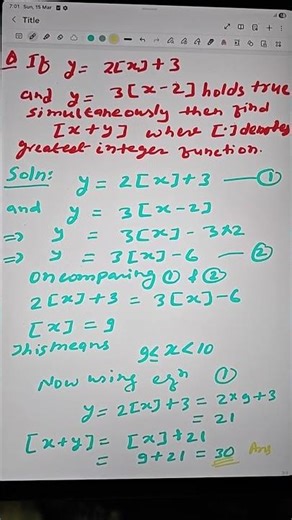 7:01 Sun, 15 Mar
Title
Q If y = 2[x]+3
and y = 3[x-2] holds true
simultaneously then find
[x+y] where [.] denotes
greatest integer function.
Soln: y = 2[x]+3 — ①
and y = 3[x-2]
⇒ y = 3[x] - 3×2
⇒ y = 3[x] - 6 — ②
On comparing ① & ②
2[x]+3 = 3[x]-6
[x] = 9
This means 9≤x<10
Now using eqn ①
y = 2[x]+3 = 2×9+3
= 21
[x+y] = [x]+21
= 9+21 = 30 Ans